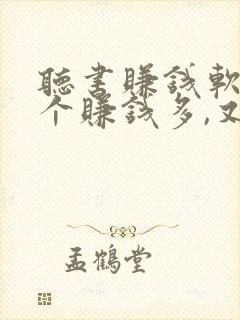 聽書賺錢軟
个賺錢多,又
孟鶴堂